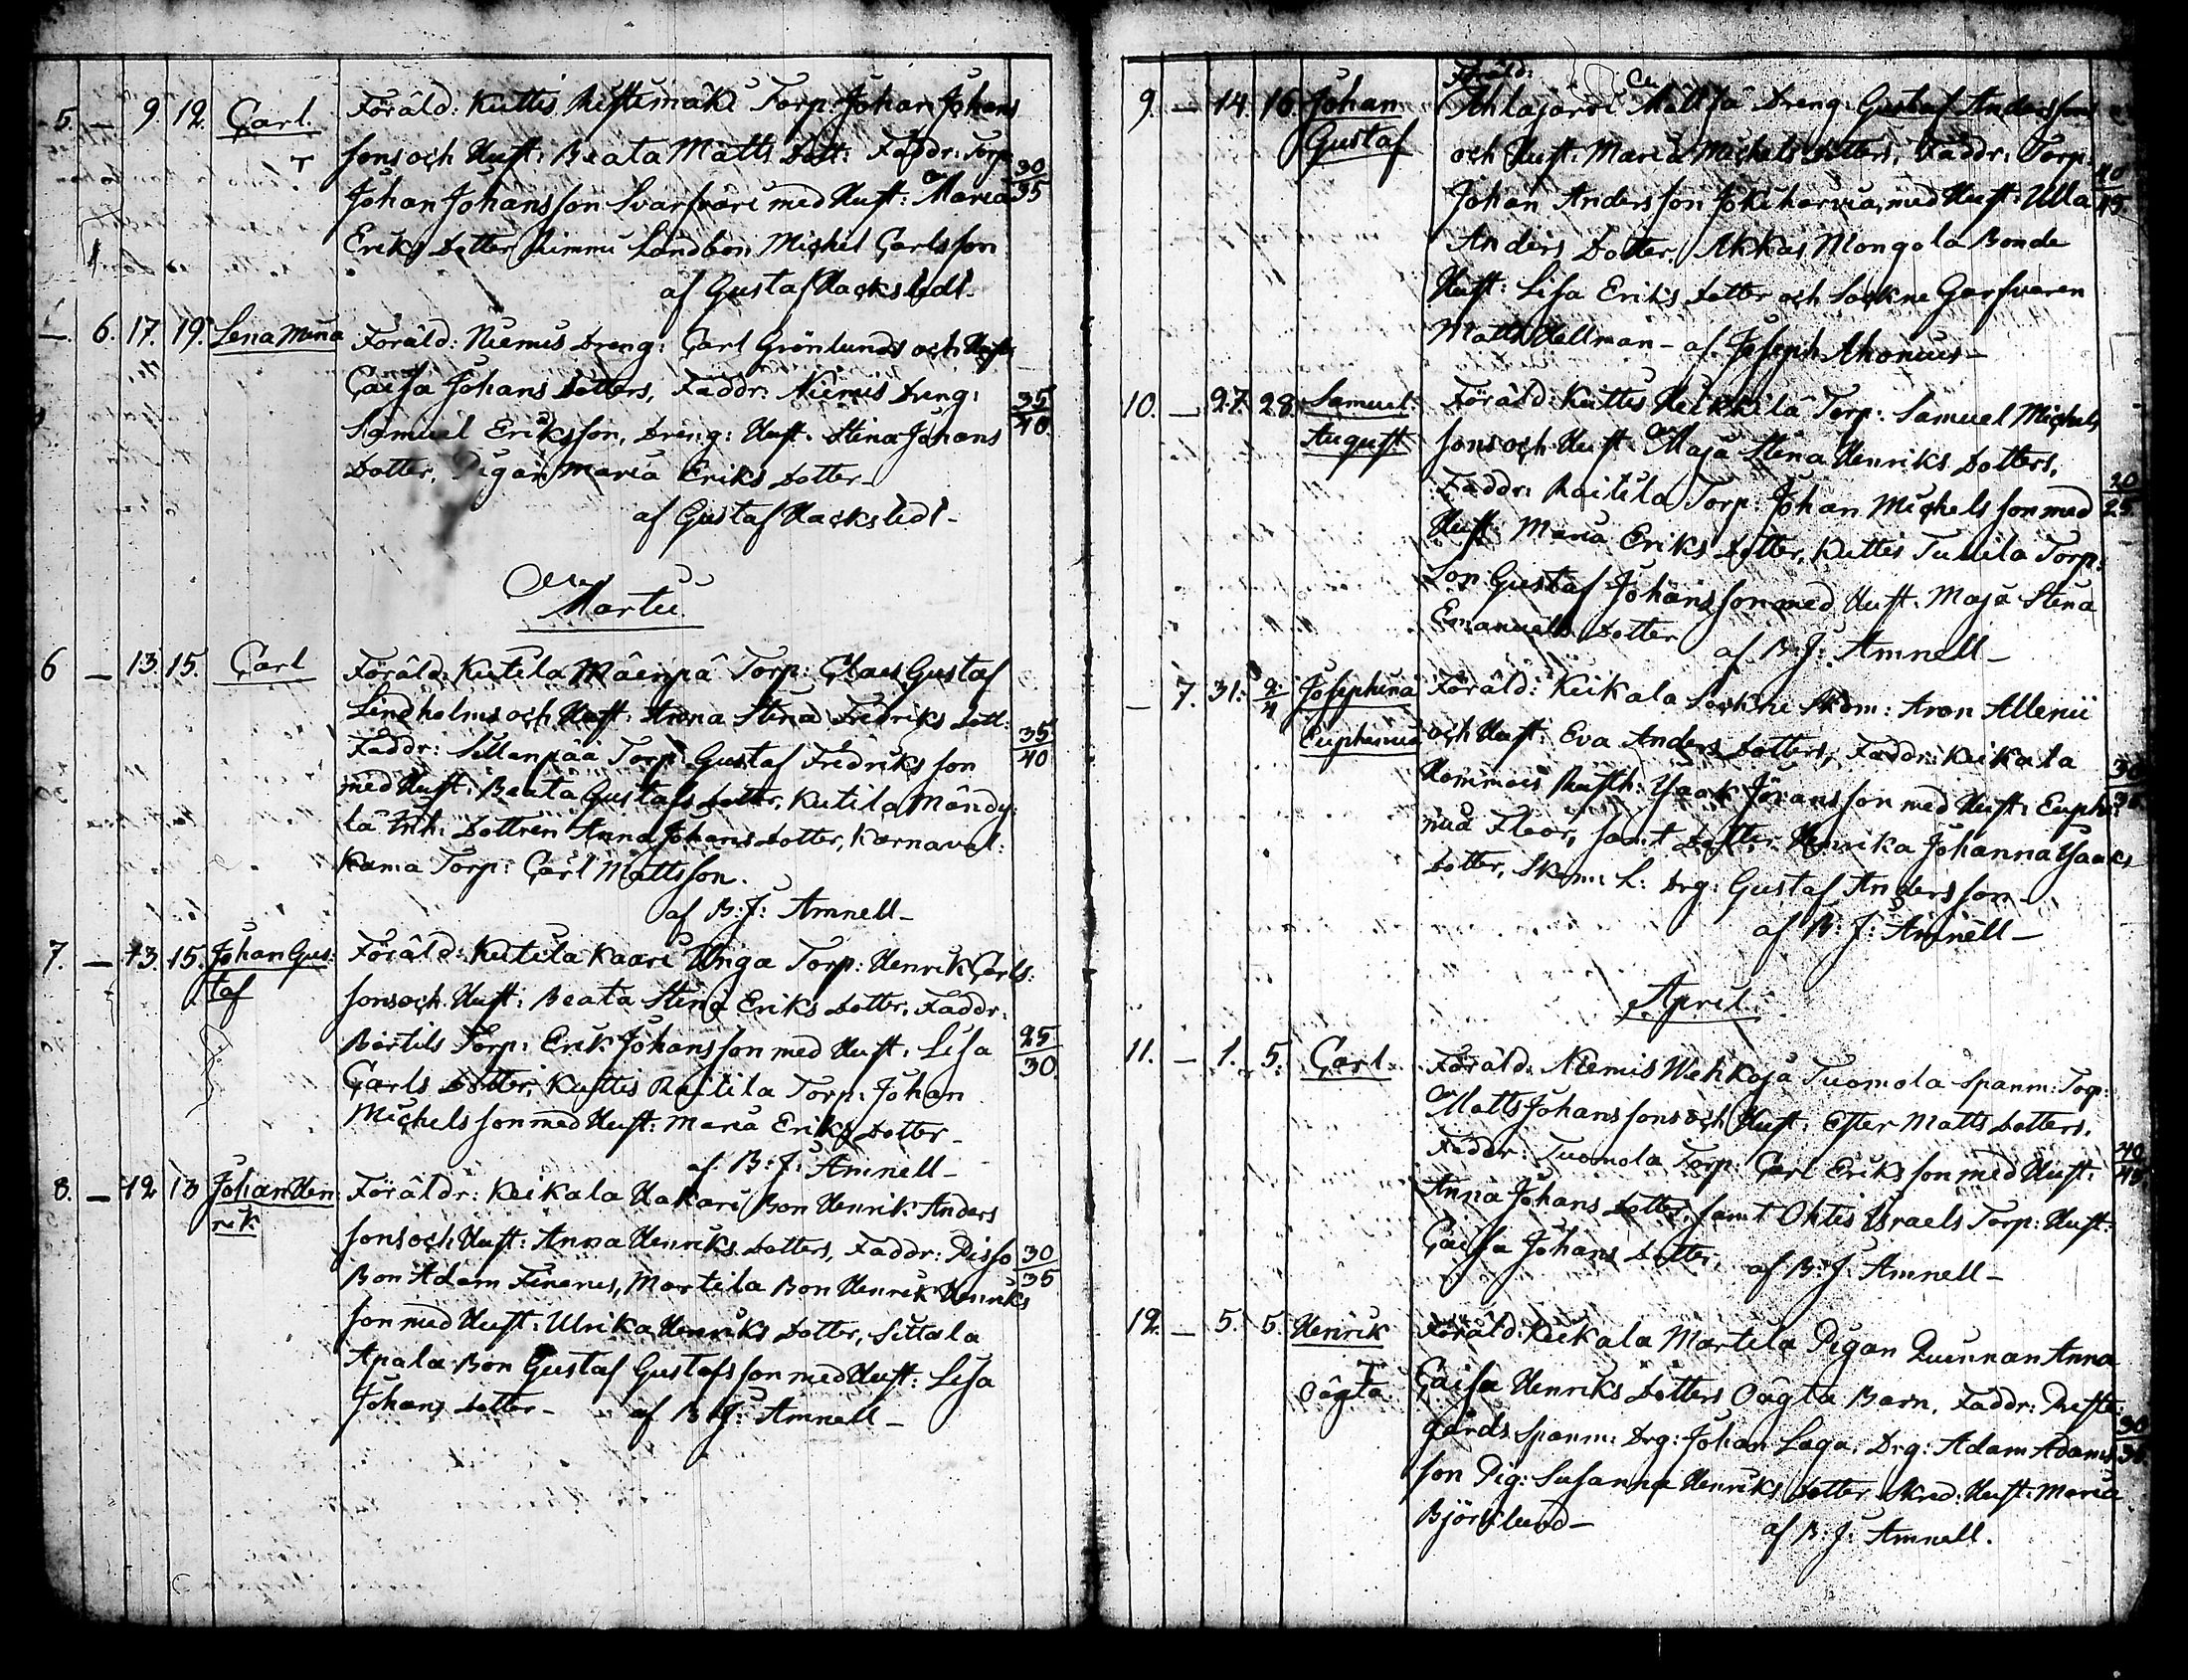 5. — 9. 12. Carl. Föräld: Kuttis Ristimäki Torp. Johan Johans
sons och Hust: Beata Matts Dott: Faddr: Torp 30/35
Johan Johansson Svarfvari med Hust: Maria
Eriks Dotter Rimmi Landbon Michel Carlsson
af Gustaf Hackstedt.
—. 6. 17. 19. Lena Mina Föräld: Niemis Dreng: Carl Grönlunds och Hust:
Caisa Johans Dotters, Faddr: Niemis Dreng: 35/40
Samuel Eriksson, Dreng: Hust. Stina Johans
Dotter, Pigan Maria Eriks Dotter—
af Gustaf Hackstedt—
Martii.
6 — 13. 15. Carl Föräld: Kutila Mäenpä Torp: Claes Gustaf
Lindholms och Hust: Anna Stina Fredriks Dott: 35/40
Faddr: Sillanpää Torp. Gustaf Fredriksson
med Hust: Beata Gustafs Dotter, Kutila Mändy:
lä Inh. Dottren Anna Johans Dotter, Karnaval:
Kama Torp: Carl Mattsson.
af B: J: Amnell—
7. — 13. 15. Johan Gus: Föräld: Kutila Kaari Unga Torp: Henrik Carls:
taf sons och Hust: Beata Stina Eriks Dotter, Faddr:
Bertils Torp: Erik Johansson med Hust: Lisa 25/30
Carls Dotter, Kuttis Raitila Torp: Johan
Michelsson med Hust: Maria Eriks Dotter—
af B: J: Amnell—
8. — 12 13 Johan Hen: Föräldr: Keikala Hakari Bon Henrik Anders
rik sons och Hust: Anna Henriks Dotters, Faddr: Pispo 30/35
Bon Adam Finerus, Martila Bon Henrik Henriks
son med Hust: Ulrika Henriks Dotter, Sittala
Apala Bon Gustaf Gustafsson med Hust: Lisa
Johans Dotter— af B: J: Amnell—
Föräld:
9. — 14. 16. Johan Ahlajärvi Mattila Dreng: Gustaf Anderssons
Gustaf och Hust: Maria Michels Dotters, Faddr: Torp: 40/45
Johan Andersson Jokiharvia, med Hust: Ulla
Anders Dotter, Akkas Mongola Bonde
Hust: Lisa Eriks Dotter och Sockne Garfvaren
Matts Hellman— af Joseph Ahonius—
10. — 27. 28. Samuel Föräld: Kuttis Heikkilä Torp: Samuel Michels
August sons och Hust: Maja Stina Henriks Dotters, 20/25
Faddr: Raitila Torp: Johan Michelsson med
Hust: Maria Eriks Dotter, Kuttis Tulila Torp:
Son Gustaf Johansson med Hust: Maja Stina
Emanuels Dotter af B: J: Amnell—
— 7. 31. 2/4 Josephina Föräld: Keikala Sockne Skdm: Aron Allenii
Euphemia och Hust: Eva Anders Dotters, Faddr: Keikala 30/
Hommais Rusth: Isaak Johansson med Hust: Euphe:
mia Fleor, samt Dotter Henrika Johanna Isaaks
Dotter, Skom: L: Drg: Gustaf Andersson—
af B: J: Amnell—
April.
11. — 1. 5. Carl. Föräld: Niemis Wehkoja Tuomola Spanm: Torp:
Matts Johanssons och Hust: Ester Matts Dotters.
Faddr: Tuomola Torp: Carl Eriksson med Hust: 40/45
Anna Johans Dotter, samt Ohtis Israels Torp: Hust:
Caisa Johans Dotter, af B: J: Amnell—
12. — 5. 5. Henrik Föräld: Keikala Martila Pigan Quinnan Anna
oägta Caisa Henriks Dotters Oägta Barn, Faddr: Preste:
gårds Spanm: Drg: Johan Laga. Drg: Adam Adams 30/
son Pig: Susanna Henriks Dotter Skred: Hust: Maria
Björklund— af B: J: Amnell.